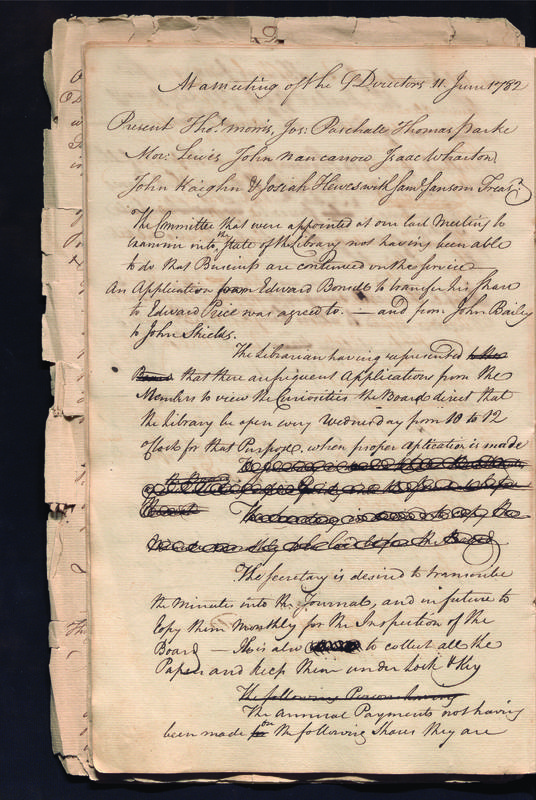 At a meeting of the Directors 11 June 1782
Present Thos. Morris, Jos: Paschall Thomas Parke
Mor: Lewis John Nancarrow Isaac Wharton
John Kaighn & Josiah Hewes with Saml Sansom Treasr.
The Committee that were appointed at our last Meeting to
Examine into the State of the Library not having been able
to do that Business are continued on the Service
An Application from Edward Bonsall to transfer his Share
to Edward Price was agreed to. — and from John Bailey
to John Shields.
The Librarian having represented to the
Board that there are frequent Applications from the
Members to view the Curiosities the Board direct that
the Library be open every Wednesday from 10 to 12
oClock for that Purpose. when proper Aplication is made
The Secretary is desired to transcribe
the Minutes into the Journal, and in future to
Copy them Monthly for the Inspection of the
Board — He is also to collect all the
Papers and keep them under Lock & Key
The following Persons having
The Annual Payments not having
been made on the following Shares they are